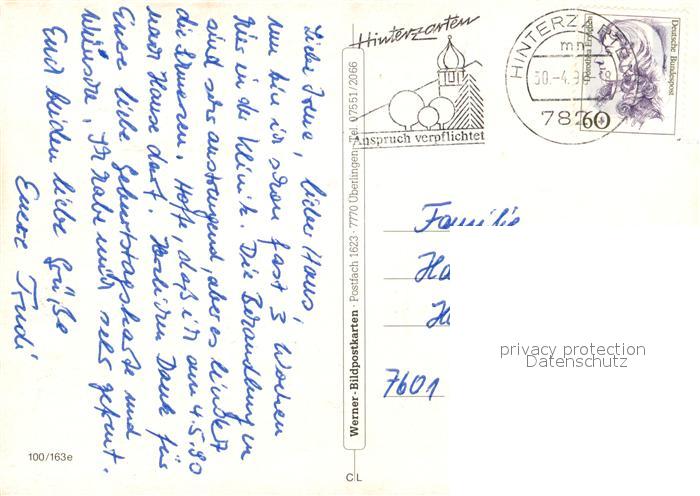 Liebe Irene, lieber Hans,
nun bin ich schon fast 3 Wochen
hier in der Klinik. Die Behandlungen
sind sehr anstrengend, aber es lindert
die Schmerzen. Hoffe, daß ich am 4.5.90
nach Hause darf. Herzlichen Dank für
Eure liebe Geburtstagskarte und
Wünsche. Ich habe mich sehr gefreut.
Euch beiden liebe Grüße
Eure Trudi
100/163e
Werner-Bildpostkarten · Postfach 1623 · 7770 Überlingen · Tel. 07551/2066
CL
Hinterzarten
Anspruch verpflichtet
HINTERZARTEN
mn
30.-4.90
782
Deutsche Bundespost
60
Familie
Ha
H
7601
privacy protection
Datenschutz